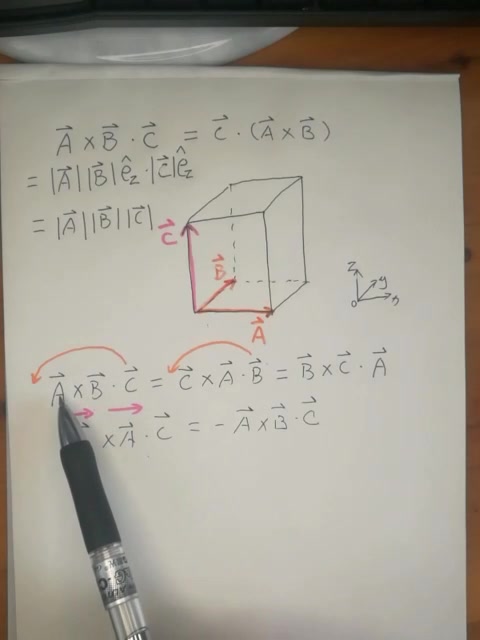 A⃗ × B⃗ · C⃗ = C⃗ · (A⃗ × B⃗)
= |A⃗||B⃗|ê_z · |C⃗|ê_z
= |A⃗||B⃗||C⃗|
C⃗
B⃗
A⃗
z
y
x
o
A⃗ × B⃗ · C⃗ = C⃗ × A⃗ · B⃗ = B⃗ × C⃗ · A⃗
× A⃗ · C⃗ = - A⃗ × B⃗ · C⃗